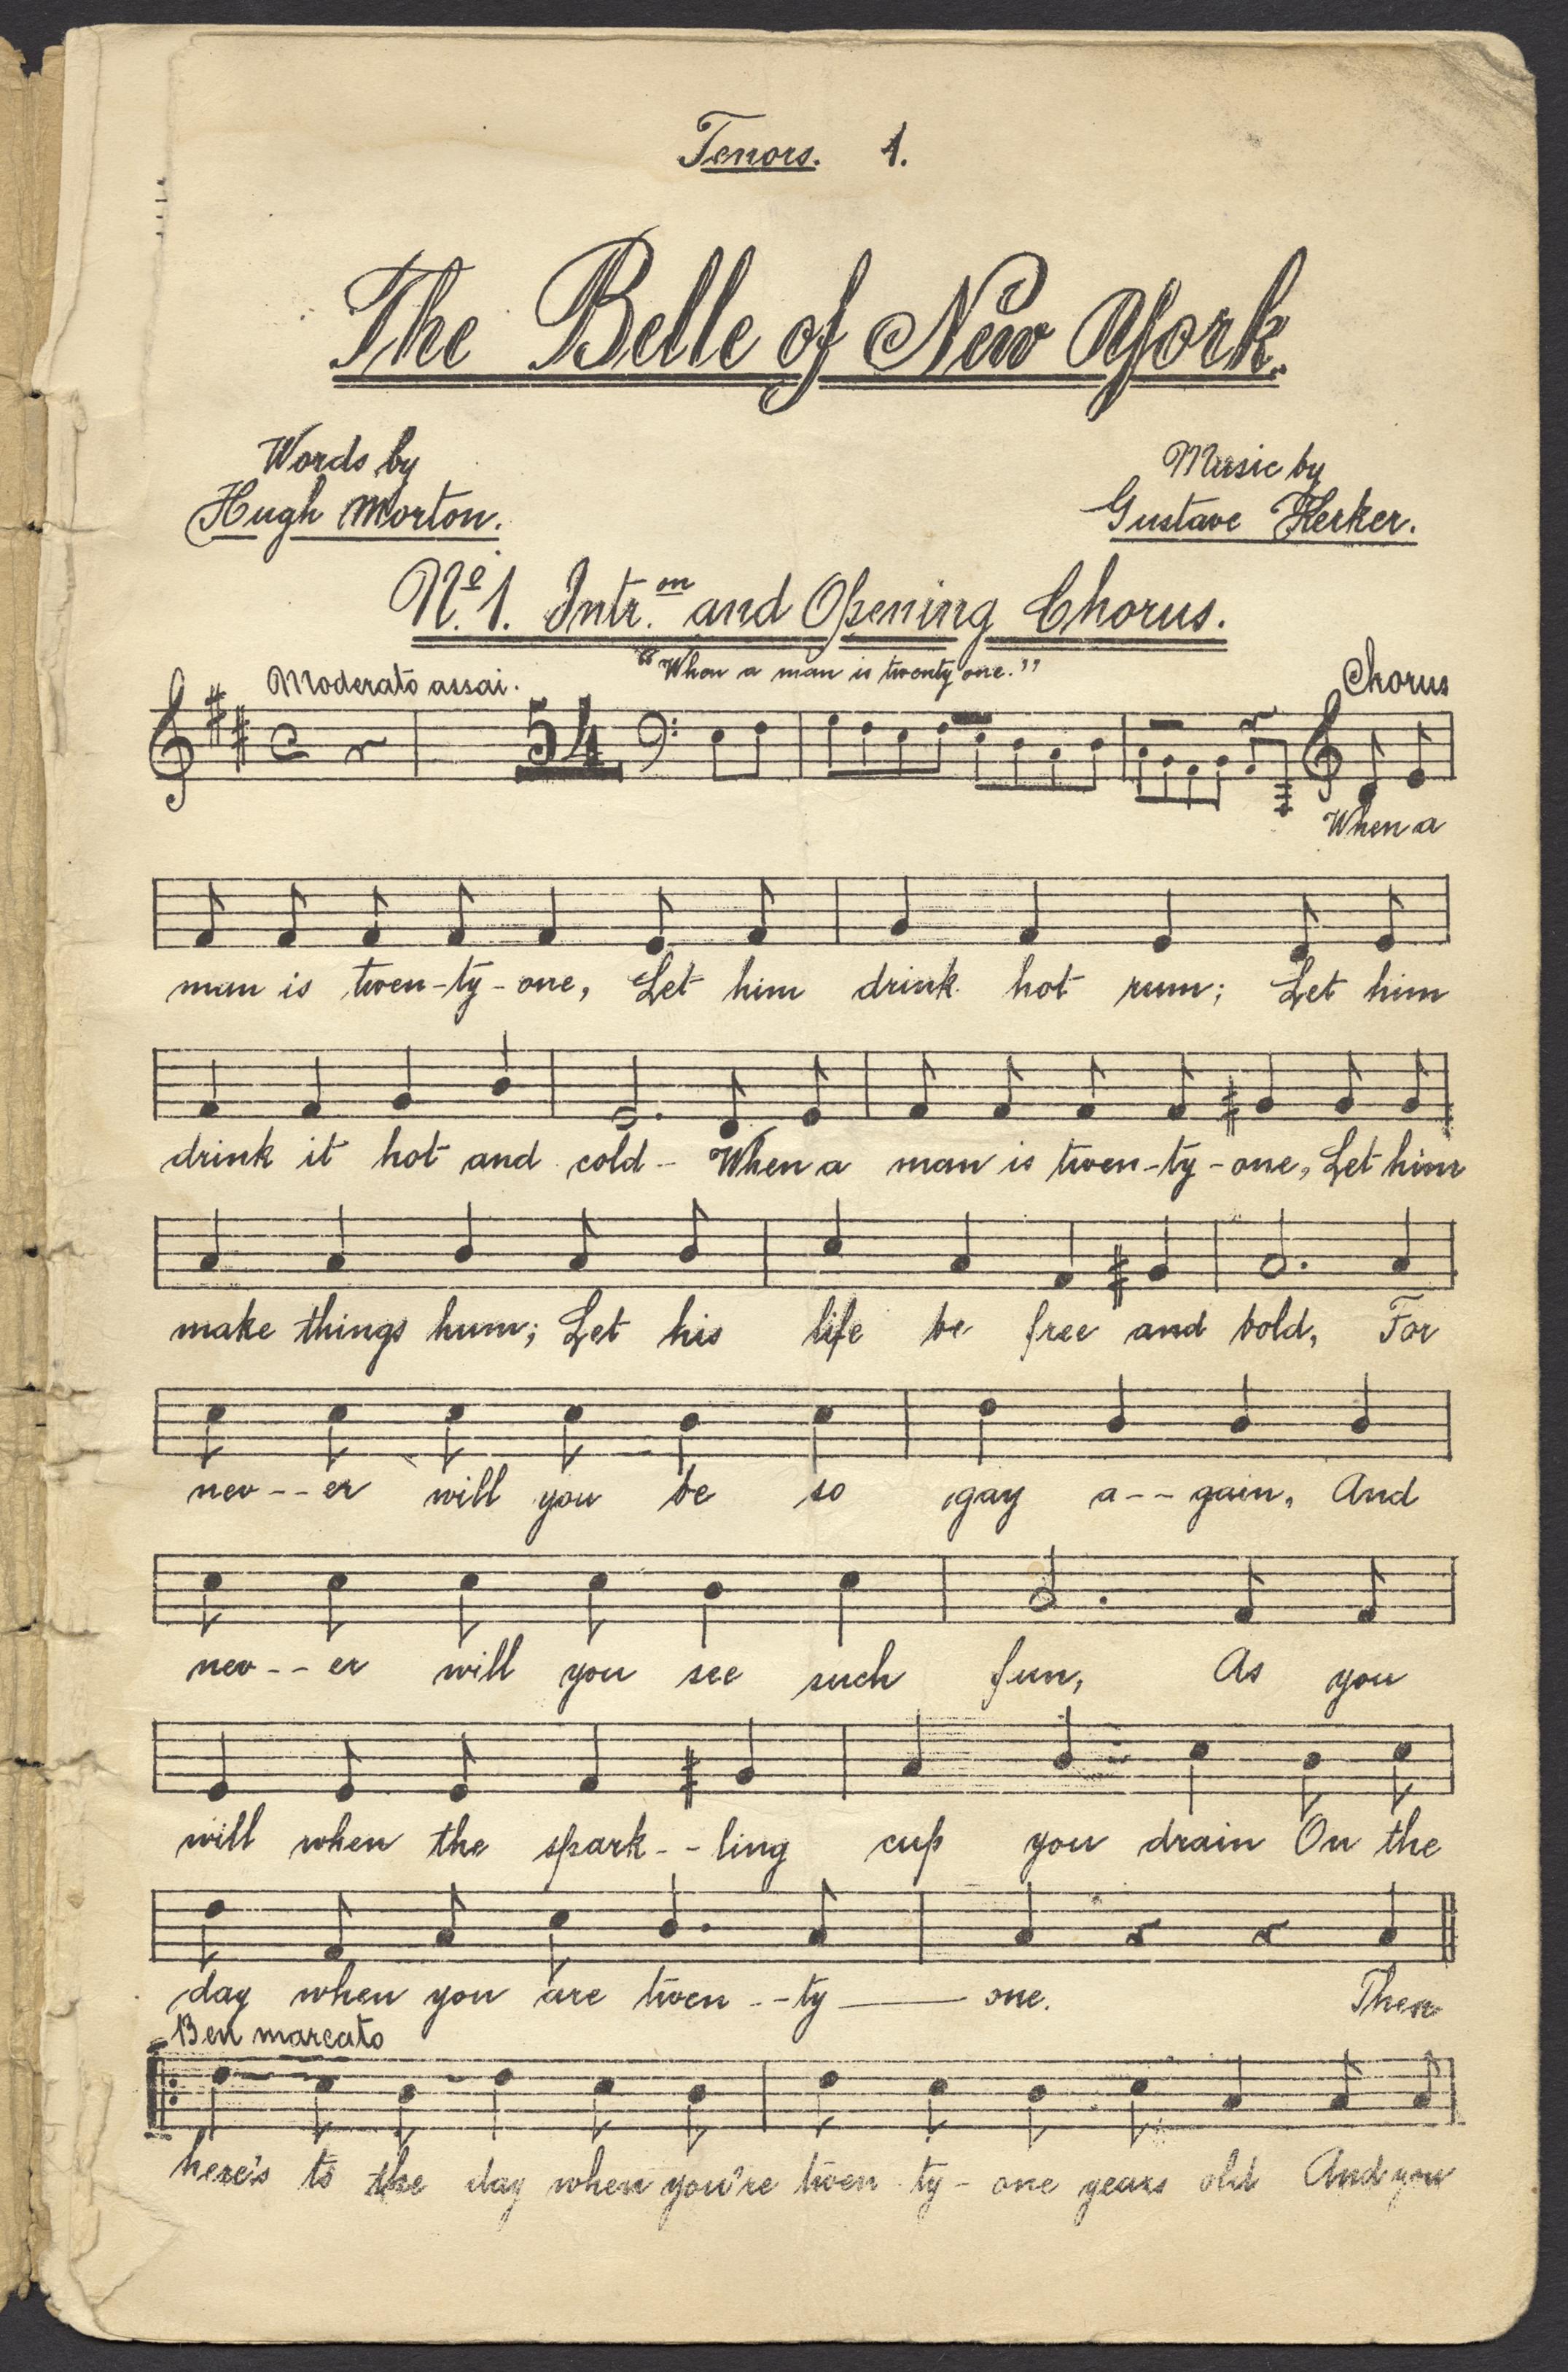 Tenors. 1.
The Belle of New York.
Words by
Hugh Morton.
Music by
Gustave Kerker.
No. 1. Intr.on and Opening Chorus.
"When a man is twenty one."
Moderato assai.
Chorus
54
When a
man is twen-ty-one, Let him drink hot rum; Let him
drink it hot and cold- When a man is twen-ty-one, Let him
make things hum; Let his life be free and bold, For
nev--er will you be so gay a--gain, And
nev--er will you see such fun, As you
will when the spark--ling cup you drain On the
day when you are twen--ty one. Then
Ben marcato
here's to the day when you're twen-ty-one years old And you